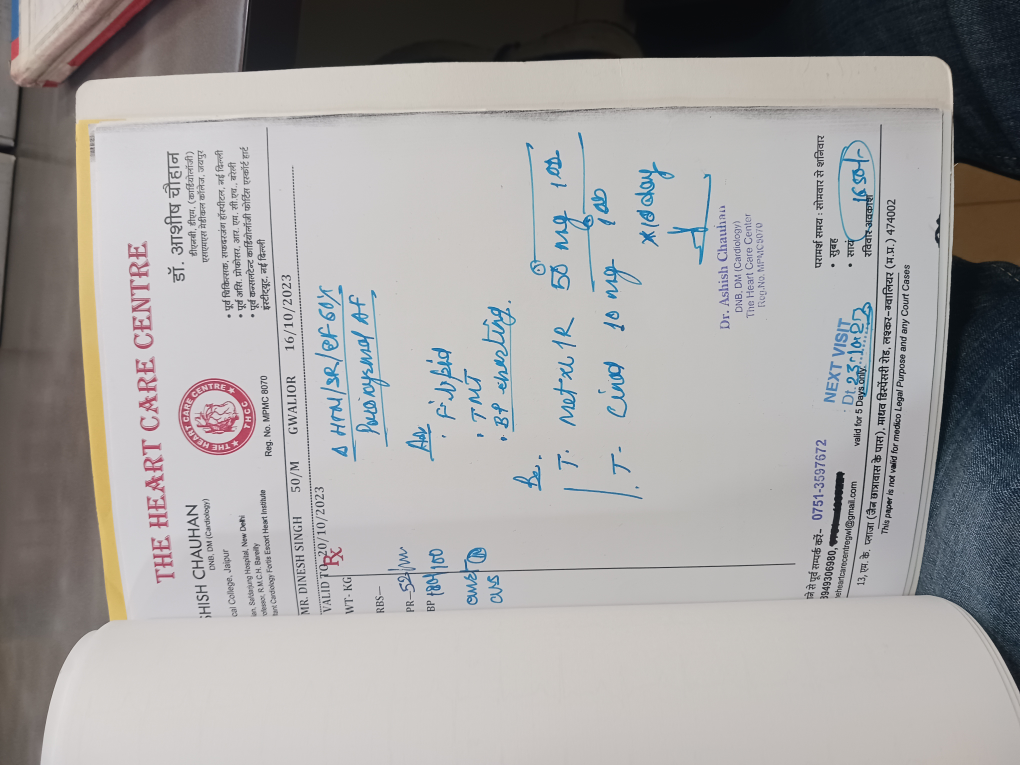 THE HEART CARE CENTRE
SHISH CHAUHAN
DNB, DM (Cardiology)
cal College, Jaipur
an, Safdarjung Hospital, New Delhi
ofessor, R.M.C.H. Bareilly
tant Cardiology Fortis Escort Heart Institute
THE HEART CARE CENTRE
T.H.C.C
Reg. No. MPMC 8070
डॉ. आशीष चौहान
डीएनबी, डीएम, (कार्डियोलॉजी)
एसएमएस मेडीकल कॉलेज, जयपुर
• पूर्व चिकित्सक, सफदरजंग हॉस्पीटल, नई दिल्ली
• पूर्व असि. प्रोफेसर, आर. एम. सी.एच., बरेली
• पूर्व कन्सलटेन्ट कार्डियोलॉजी फोर्टिस एस्कॉर्ट हार्ट
इंस्टीट्यूट, नई दिल्ली
MR. DINESH SINGH 50/M GWALIOR 16/10/2023
VALID TO 20/10/2023
Rx
WT- KG
RBS—
PR- 52/m
BP 180/100
CVS
Δ HTN/SR/EF 60%
Paroxysmal AF
Adv
• TMT
• BP charting.
T. Metxl IR 50 mg 1 OD
T- Cinod 10 mg 1 OD
x 10 day
Dr. Ashish Chauhan
DNB, DM (Cardiology)
The Heart Care Center
Reg.No. MPMC8070
ने से पूर्व सम्पर्क करें- 0751-3597672
8949306980,
heheartcarecentregwl@gmail.com
NEXT VISIT
Dt. 23.10.23
valid for 5 Days only.
परामर्श समय : सोमवार से शनिवार
• सुबह
• सायं
रविवार अवकाश
13, एम. के. प्लाजा (जैन छात्रावास के पास), माधव डिस्पेंसरी रोड, लश्कर-ग्वालियर (म.प्र.) 474002
This paper is not valid for medico Legal Purpose and any Court Cases